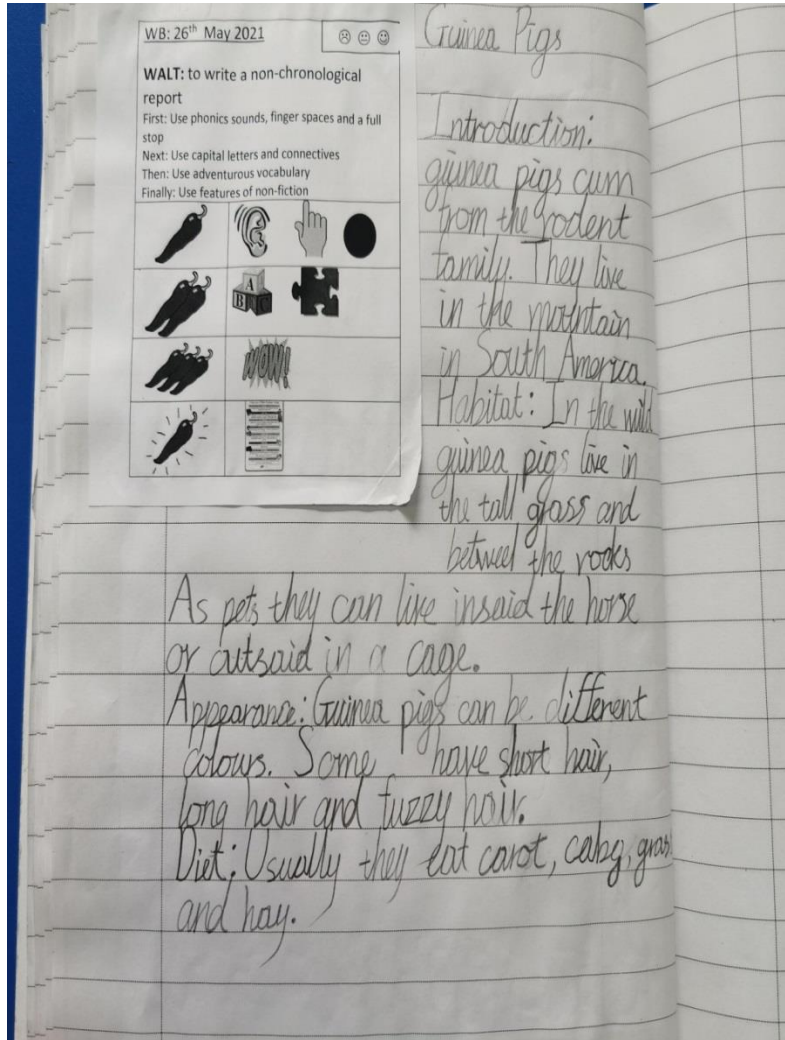 WB: 26th May 2021
WALT: to write a non-chronological
report
First: Use phonics sounds, finger spaces and a full
stop
Next: Use capital letters and connectives
Then: Use adventurous vocabulary
Finally: Use features of non-fiction
A
B C
WOW!
Guinea Pigs
Introduction:
guinea pigs cum
from the rodent
family. They live
in the mountain
in South America.
Habitat: In the wild
guinea pigs live in
the tall grass and
betweel the rocks
As pets they can live insaid the horse
or outsaid in a cage.
Appearance: Guinea pigs can be different
colours. Some have short hair,
long hair and fuzzy hair.
Diet: Usually they eat carot, cabg, gras
and hay.